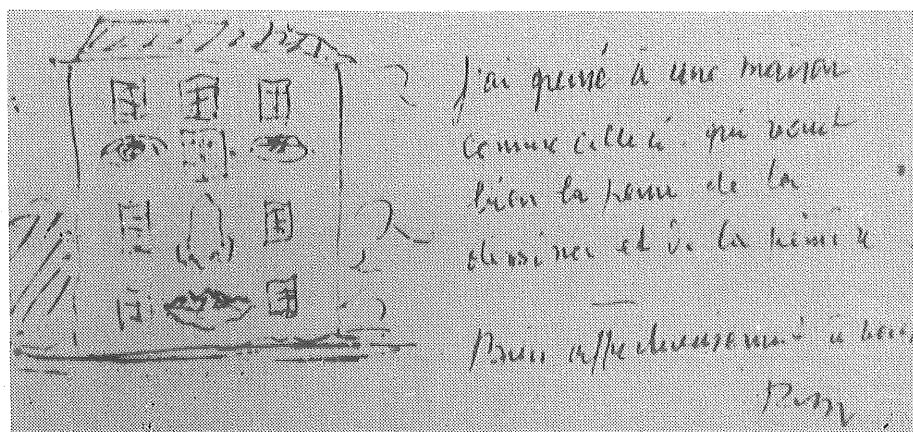 J'ai pensé à une maison
comme celle-ci qui vaut
bien la peine de la
dessiner et de la
Bien affectueusement à vous